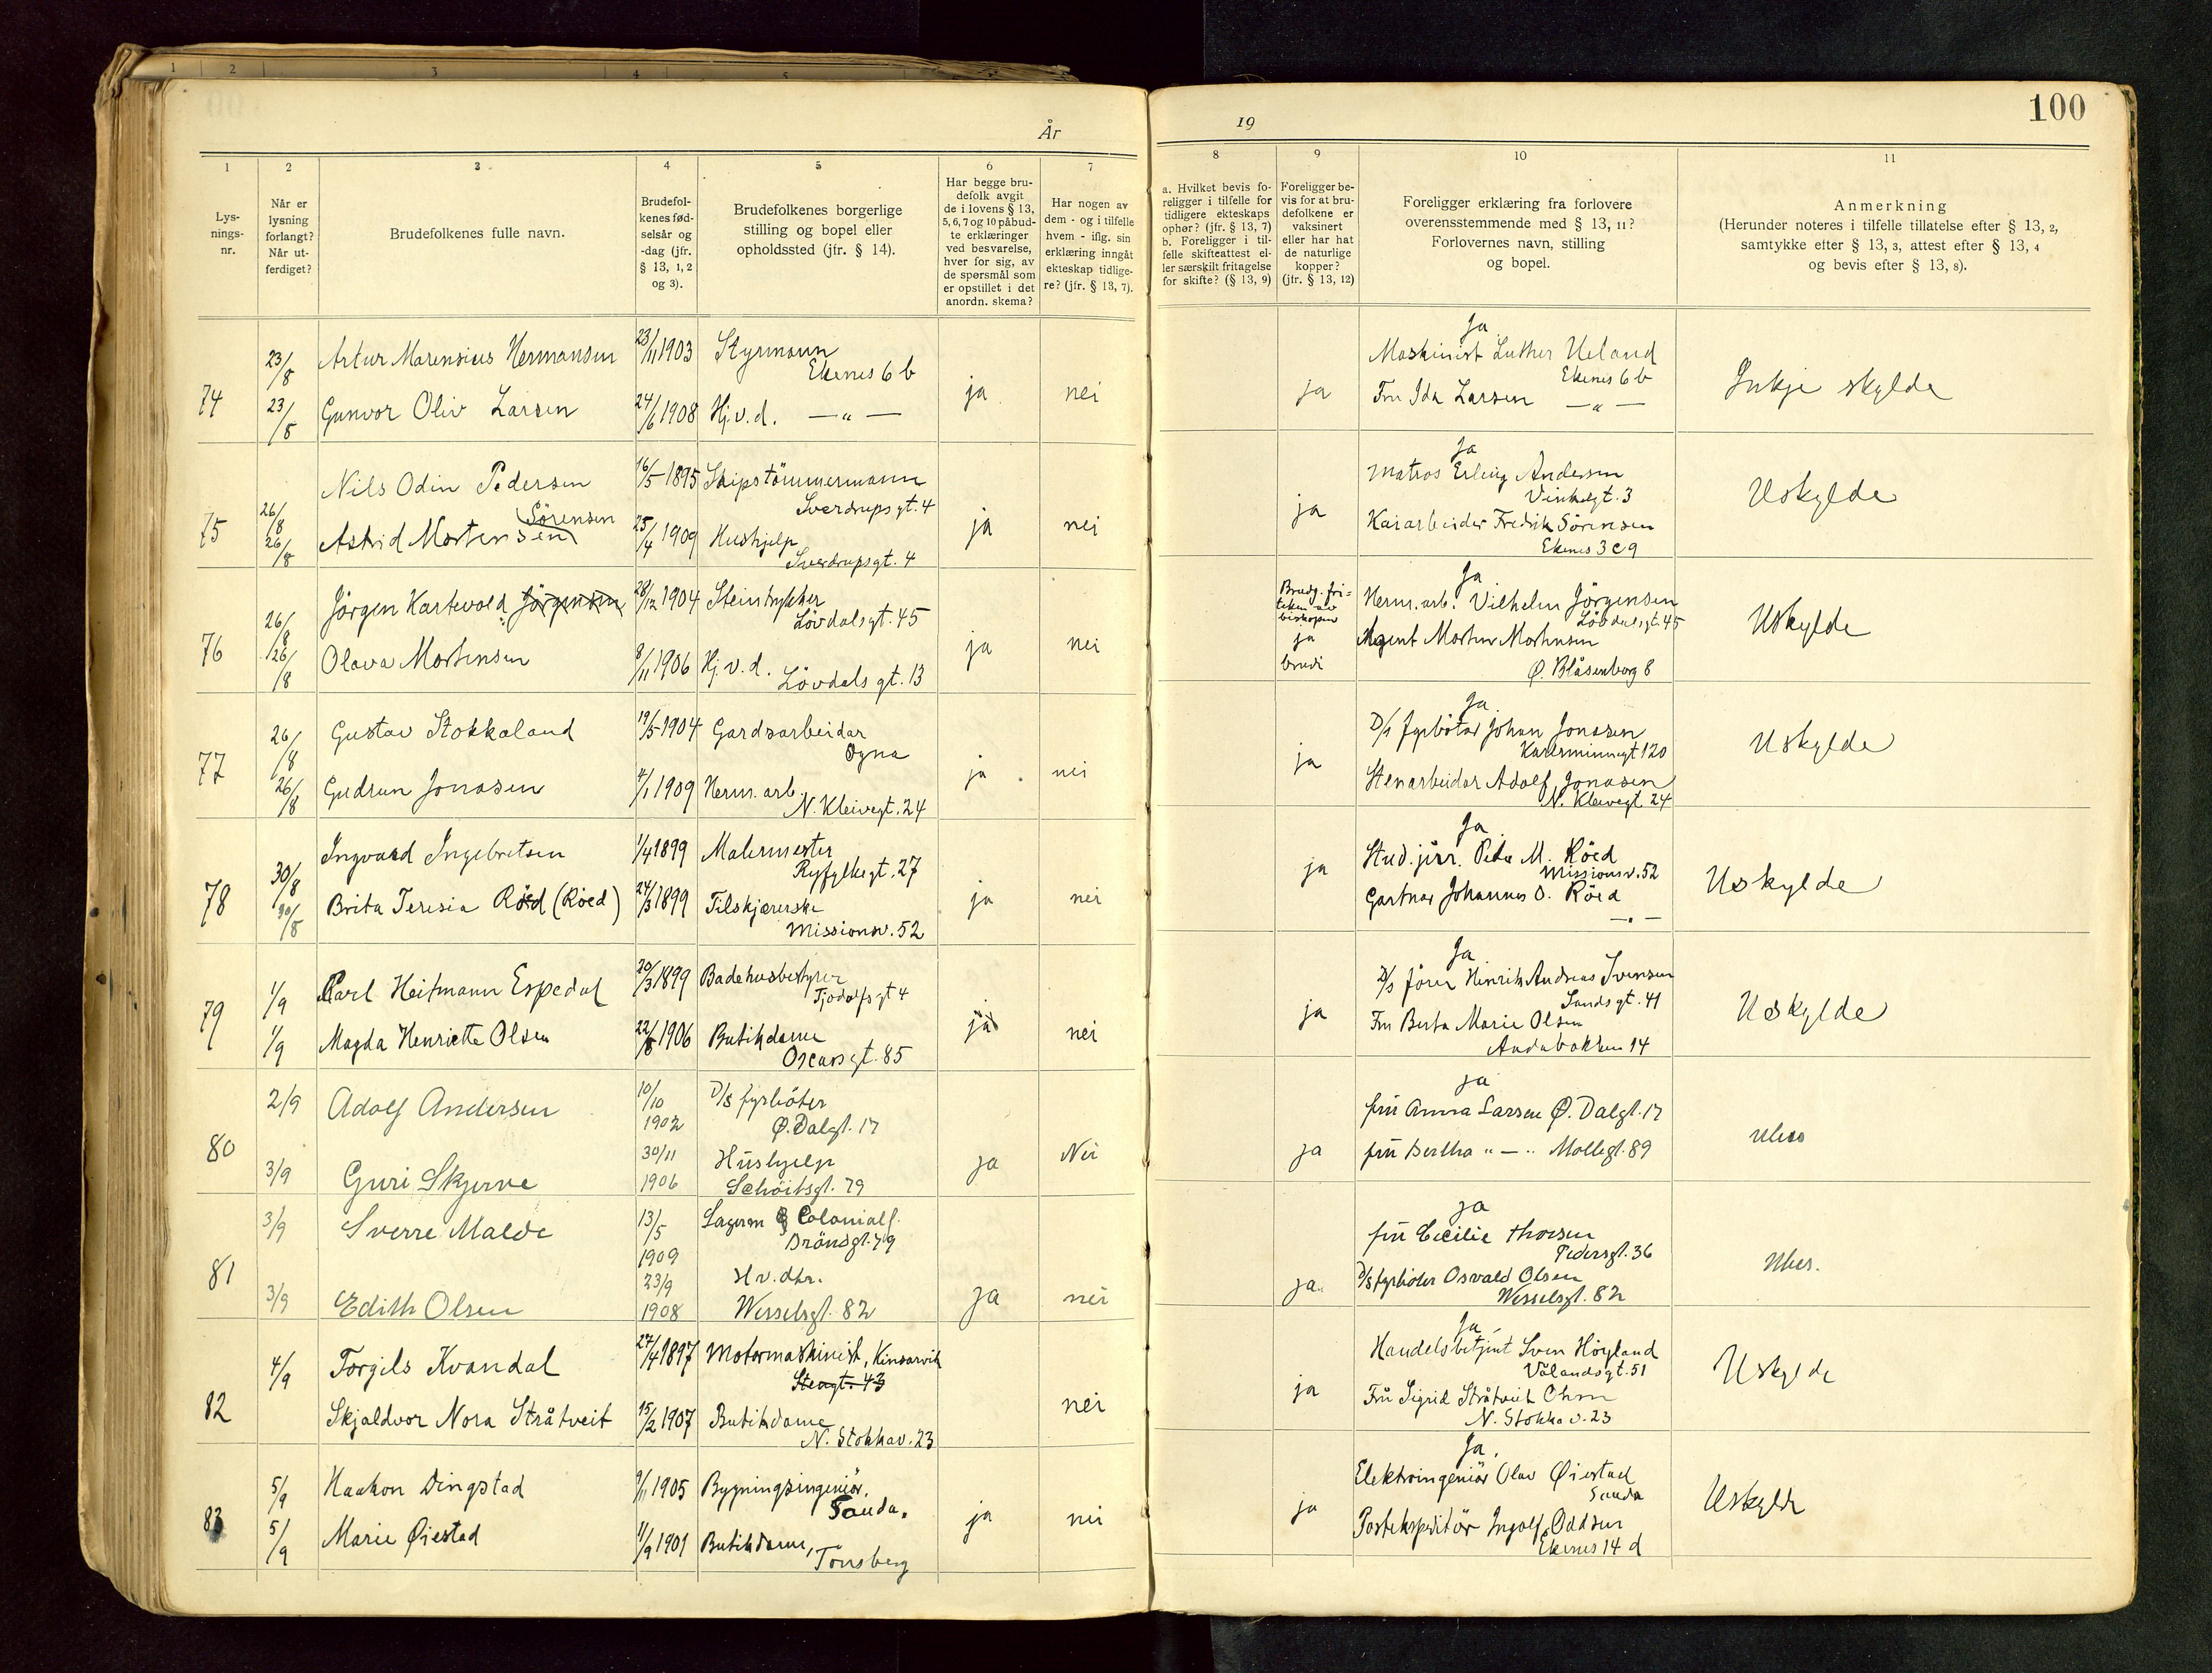 1 2 3 4 5
År
19
100
1 2 3 4 5 6 7 8 9 10 11
Lys-
nings-
nr.
Når er
lysning
forlangt?
Når ut-
ferdiget?
Brudefolkenes fulle navn.
Brudefol-
kenes fød-
selsår og
-dag (jfr.
§ 13, 1, 2
og 3).
Brudefolkenes borgerlige
stilling og bopel eller
opholdssted (jfr. § 14).
Har begge bru-
defolk avgit
de i lovens § 13,
5, 6, 7 og 10 påbud-
te erklæringer
ved besvarelse,
hver for sig, av
de spørsmål som
er opstillet i det
anordn. skema?
Har nogen av
dem - og i tilfelle
hvem - iflg. sin
erklæring inngåt
ekteskap tidlige-
re? (jfr. § 13, 7).
a. Hvilket bevis fo-
religger i tilfelle for
tidligere ekteskaps
ophør? (jfr. § 13, 7)
b. Foreligger i til-
felle skifteattest el-
ler særskilt fritagelse
for skifte? (§ 13, 9)
Foreligger be-
vis for at bru-
defolkene er
vaksinert
eller har hat
de naturlige
kopper?
(jfr. § 13, 12)
Foreligger erklæring fra forlovere
overensstemmende med § 13, 11?
Forlovernes navn, stilling
og bopel.
Anmerkning
(Herunder noteres i tilfelle tillatelse efter § 13, 2,
samtykke efter § 13, 3, attest efter § 13, 4
og bevis efter § 13, 8).
74
23/8
23/8
Artur Marensius Hermansen
Gunvor Oliv Larsen
23/11 1903
24/6 1908
Styrmann
Ekenes 6 b
Hj.v.d. — „ —
ja
nei
ja
Ja
Maskinist Luther Ueland
Ekenes 6 b
Fru Ida Larsen — „ —
Inkje skylde
75
26/8
26/8
Nils Odin Pedersen
Sörensen
Astrid Mortensen
16/5 1895
25/4 1909
Skipstömmermann
Sverdrups gt. 4
Hushjelp
Sverdrupsgt. 4
ja
nei
ja
Ja
Matros Erling Andersen
Vinkelgt. 3
Kaiarbeider Fredrik Sörensen
Ekenes 3 c 9
Uskylde
76
26/8
26/8
Jörgen Kartevold Jörgensen
Olava Mortensen
28/12 1904
8/11 1906
Steintrykker
Lövdalsgt. 45
Hj.v.d.
Lövdals gt. 13
ja
nei
Brudg. fri-
teken av
biskopen
ja
brudi
Ja
Herm. arb. Vilhelm Jörgensen
Lövdalsgt. 45
Agent Morten Mortensen
Ø. Blåsenborg 8
Uskylde
77
26/8
26/8
Gustav Stokkaland
Gudrun Jonasen
19/5 1904
4/1 1909
Gardsarbeidar
Ogna
Herm. arb.
N. Kleivegt. 24
ja
nei
ja
Ja
D/s fyrbötar Johan Jonasen
Karlsminnegt 120
Stenarbeidar Adolf Jonasen
N. Kleivegt. 24
Uskylde
78
30/8
30/8
Ingvard Ingebretsen
Brita Teresia Röed (Röed)
1/4 1899
24/3 1899
Malermester
Ryfylkegt. 27
Tilskjærerske
Missionsv. 52
ja
nei
ja
Ja
Stud. jur. Peder M. Röed
Missionsv. 52
Gartnar Johannes O. Röed
— „ —
Uskylde
79
1/9
1/9
Karl Heitmann Espedal
Magda Henriette Olsen
20/3 1899
22/8 1906
Badehusbestyrer
Tjodolfsgt 4
Butikdame
Oscarsgt. 85
ja
nei
ja
Ja
D/s förer Henrik Andreas Ivensen
Sandsgt. 41
Fru Berta Marie Olsen
Andabakken 14
Uskylde
80
2/9
3/9
Adolf Andersen
Guri Skjerve
10/10
1902
30/11
1906
D/s fyrböter
Ø. Dalgt. 17
Hushjelp
Schöitsgt. 79
ja
Nei
ja
ja
fru Anna Larsen Ø. Dalgt. 17
fru Bertha „ — „ Mollegt. 89
Ubes
81
3/9
3/9
Sverre Malde
Edith Olsen
13/5
1909
23/9
1908
Lagerm Colonialf.
Bröndgt. 79
Hv. dtr.
Wesselsgt. 82
ja
nei
ja
ja
fru Cecilie Thorsen
Pedersgt. 36
D/s fyrböter Osvald Olsen
Wesselsgt. 82
Ubes.
82
4/9
Torgils Kvandal
Skjaldvor Nora Stråtveit
27/4 1897
15/2 1907
Motormaskinist, Kinsarvik
Stengt. 43
Butikdame
N. Stokkav. 23
nei
ja
Ja
Handelsbetjent Sven Höyland
Vålandsgt. 51
Fru Sigrid Stråtveit Ohm
N. Stokkav. 23
Uskylde
83
5/9
5/9
Haakon Dingstad
Marie Øiestad
9/11 1905
1/9 1901
Bygningsingeniör,
Sauda.
Butikdame,
Tönsberg
ja
nei
ja
Ja.
Elektroingeniör Olav Øiestad
Sauda
Postekspeditör Ingolf Oddsen
Ekenes 14 d
Uskylde